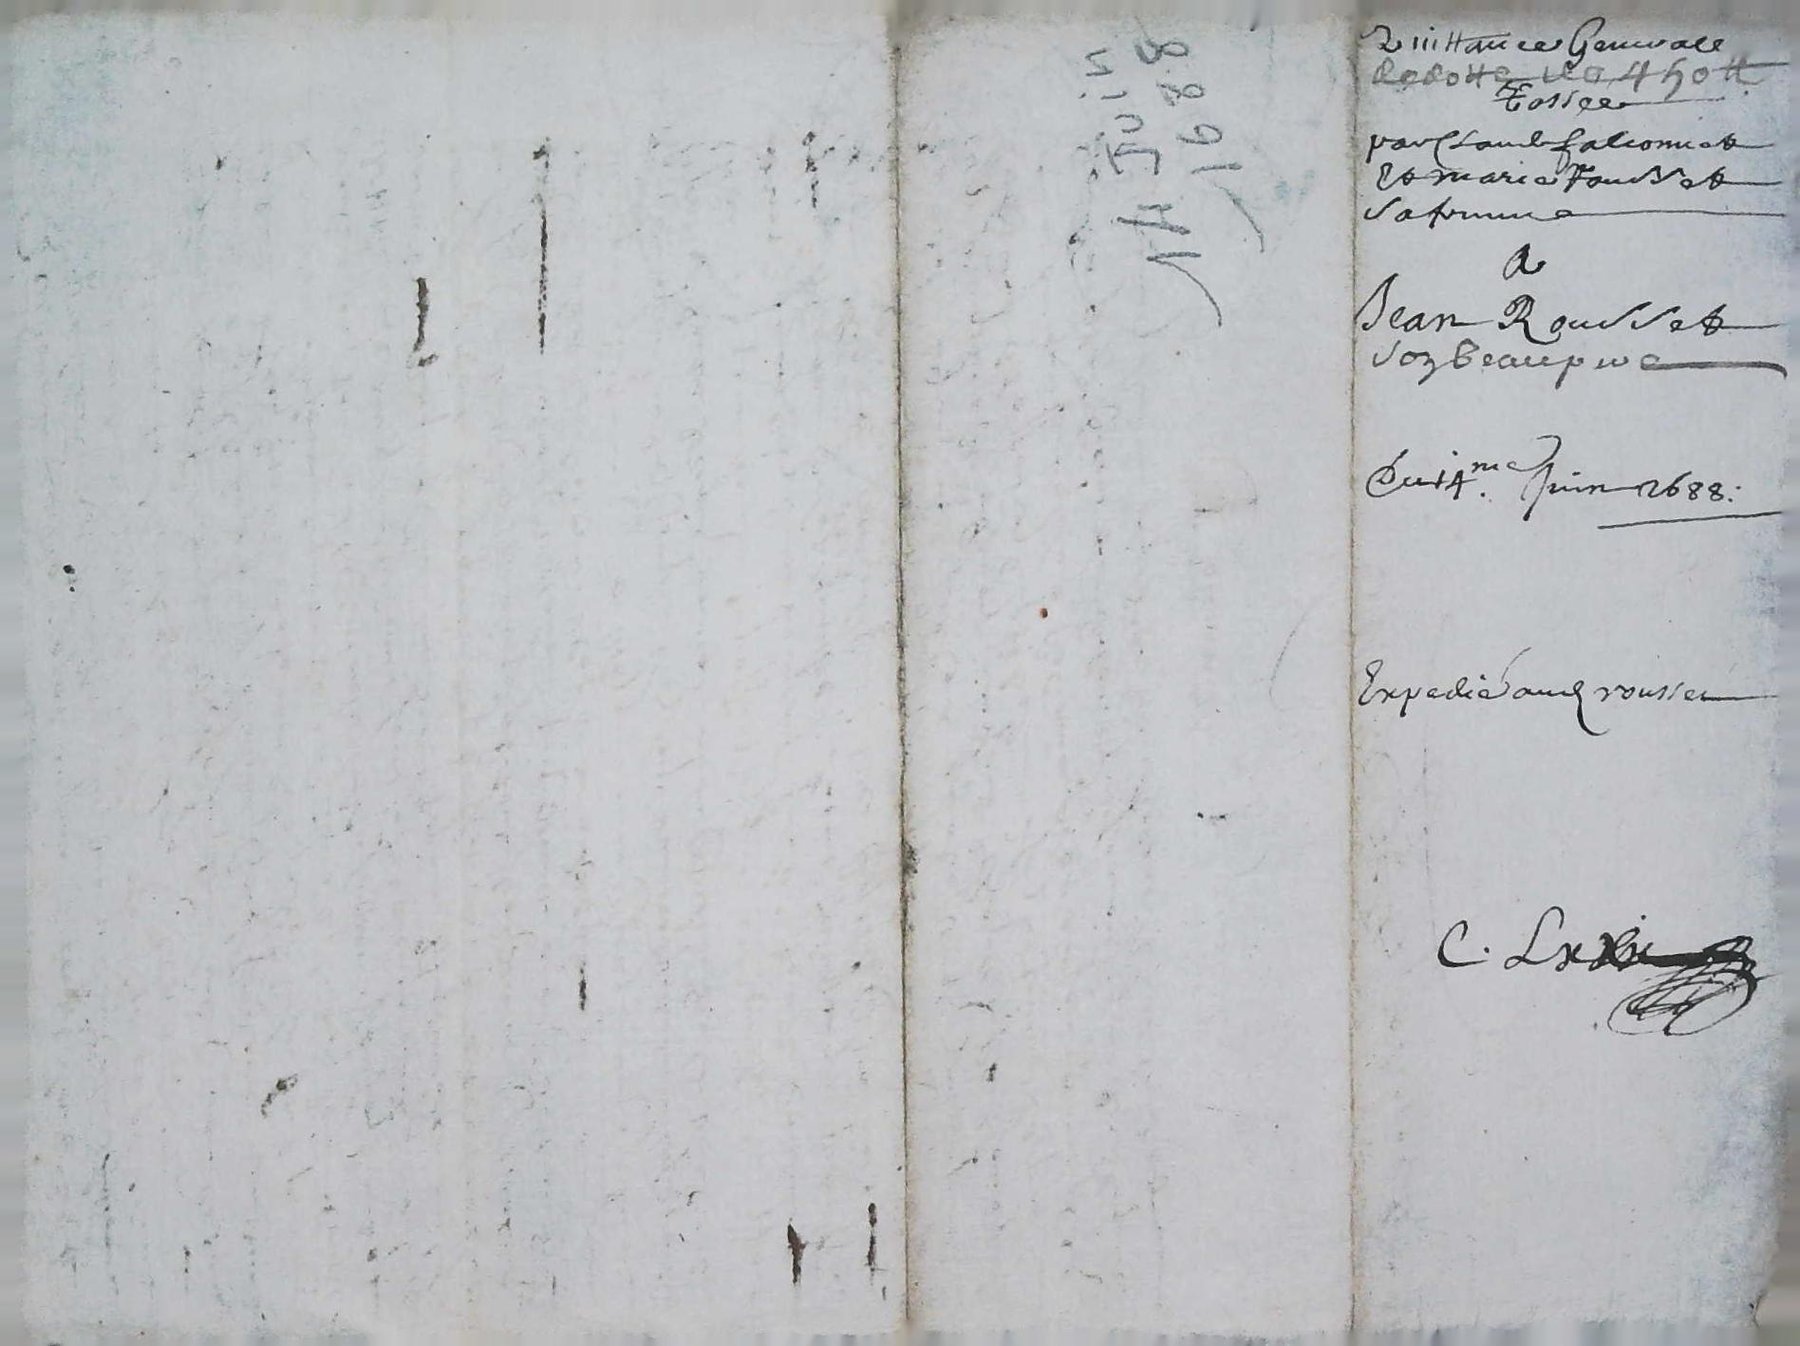 Quittance Generale
de dotte de 450 tt
Passee
par Claude falconnet
Et marie Rousset
sa femme
A
Jean Rousset
son beaupere
Du 14.me Juin 1688:
Expedié aud rousset
C.
14 Juin
1688